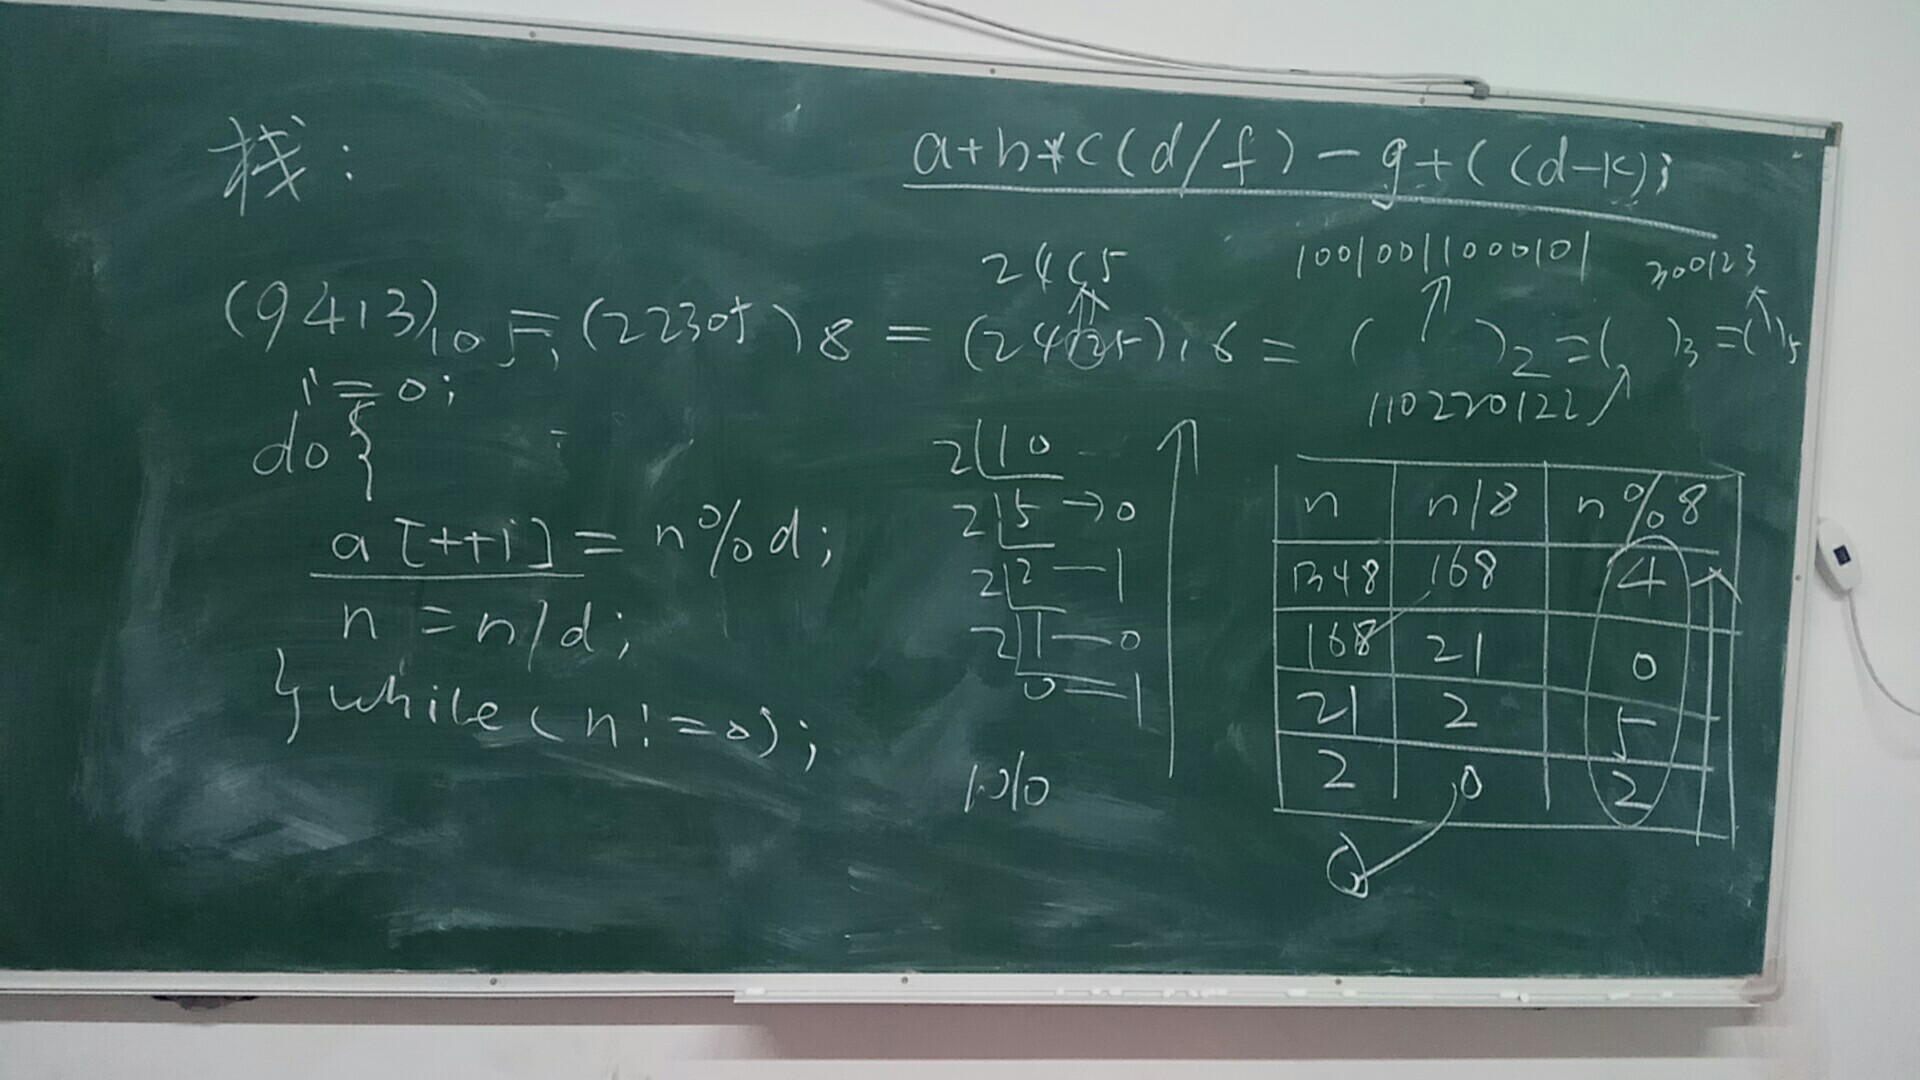 栈:
a+b*c(d/f)-g+((d-k);
24C5
10010011000101
300123
(9413)10 = (22305)8 = (24125)16 = ( )2 = ( )3 = ( )5
110220122
i=0;
do {
a[++i] = n%d;
n = n/d;
} while(n!=0);
2 10
2 5 →0
2 2 —1
2 1 —0
0 —1
1010
n n/8 n%8
1348 168 4
168 21 0
21 2 5
2 0 2